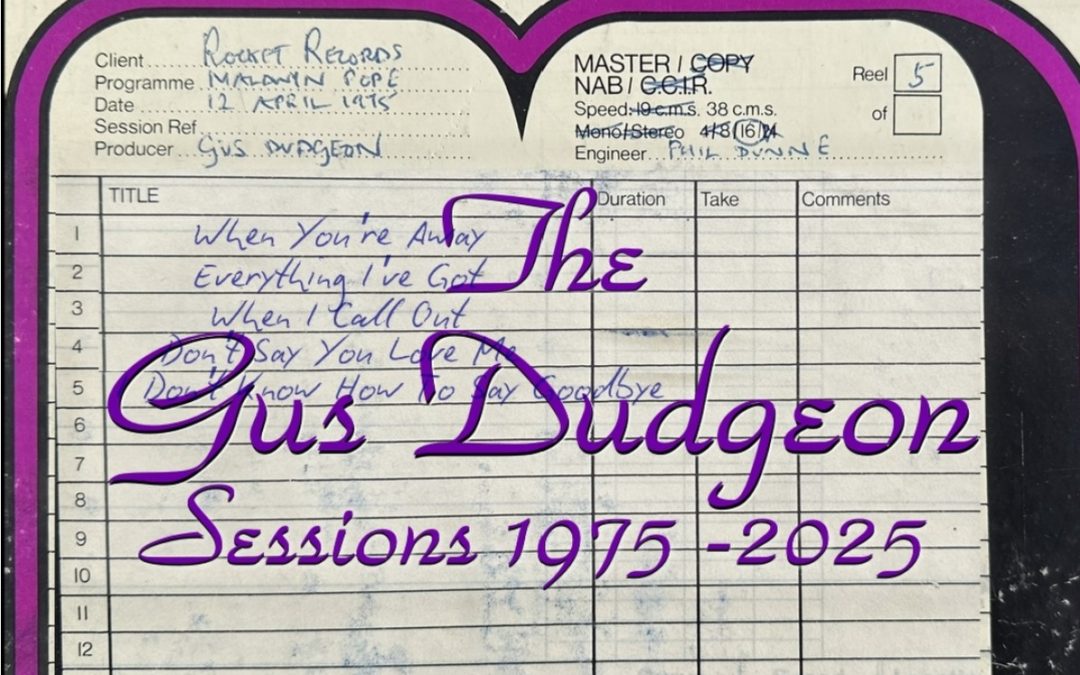 Client Rocket Records
Programme MALDWYN POPE
Date 12 APRIL 1975
Session Ref
Producer GUS DUDGEON
MASTER / COPY
NAB / C.C.I.R.
Speed: 19 c.m.s. 38 c.m.s.
Mono/Stereo 4/8/16/24
Engineer PHIL DUNNE
Reel 5
of
TITLE Duration Take Comments
1 When You're Away
2 Everything I've Got
3 When I Call Out
4 Don't Say You Love Me
5 Don't Know How To Say Goodbye
6
7
8
9
10
11
12
The
Gus Dudgeon
Sessions 1975 - 2025